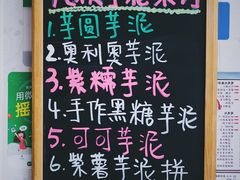 1.芋圆芋泥
2.奥利奥芋泥
3.紫糯芋泥
4.手作黑糖芋泥
5.可可芋泥
6.紫薯芋泥拼
摇